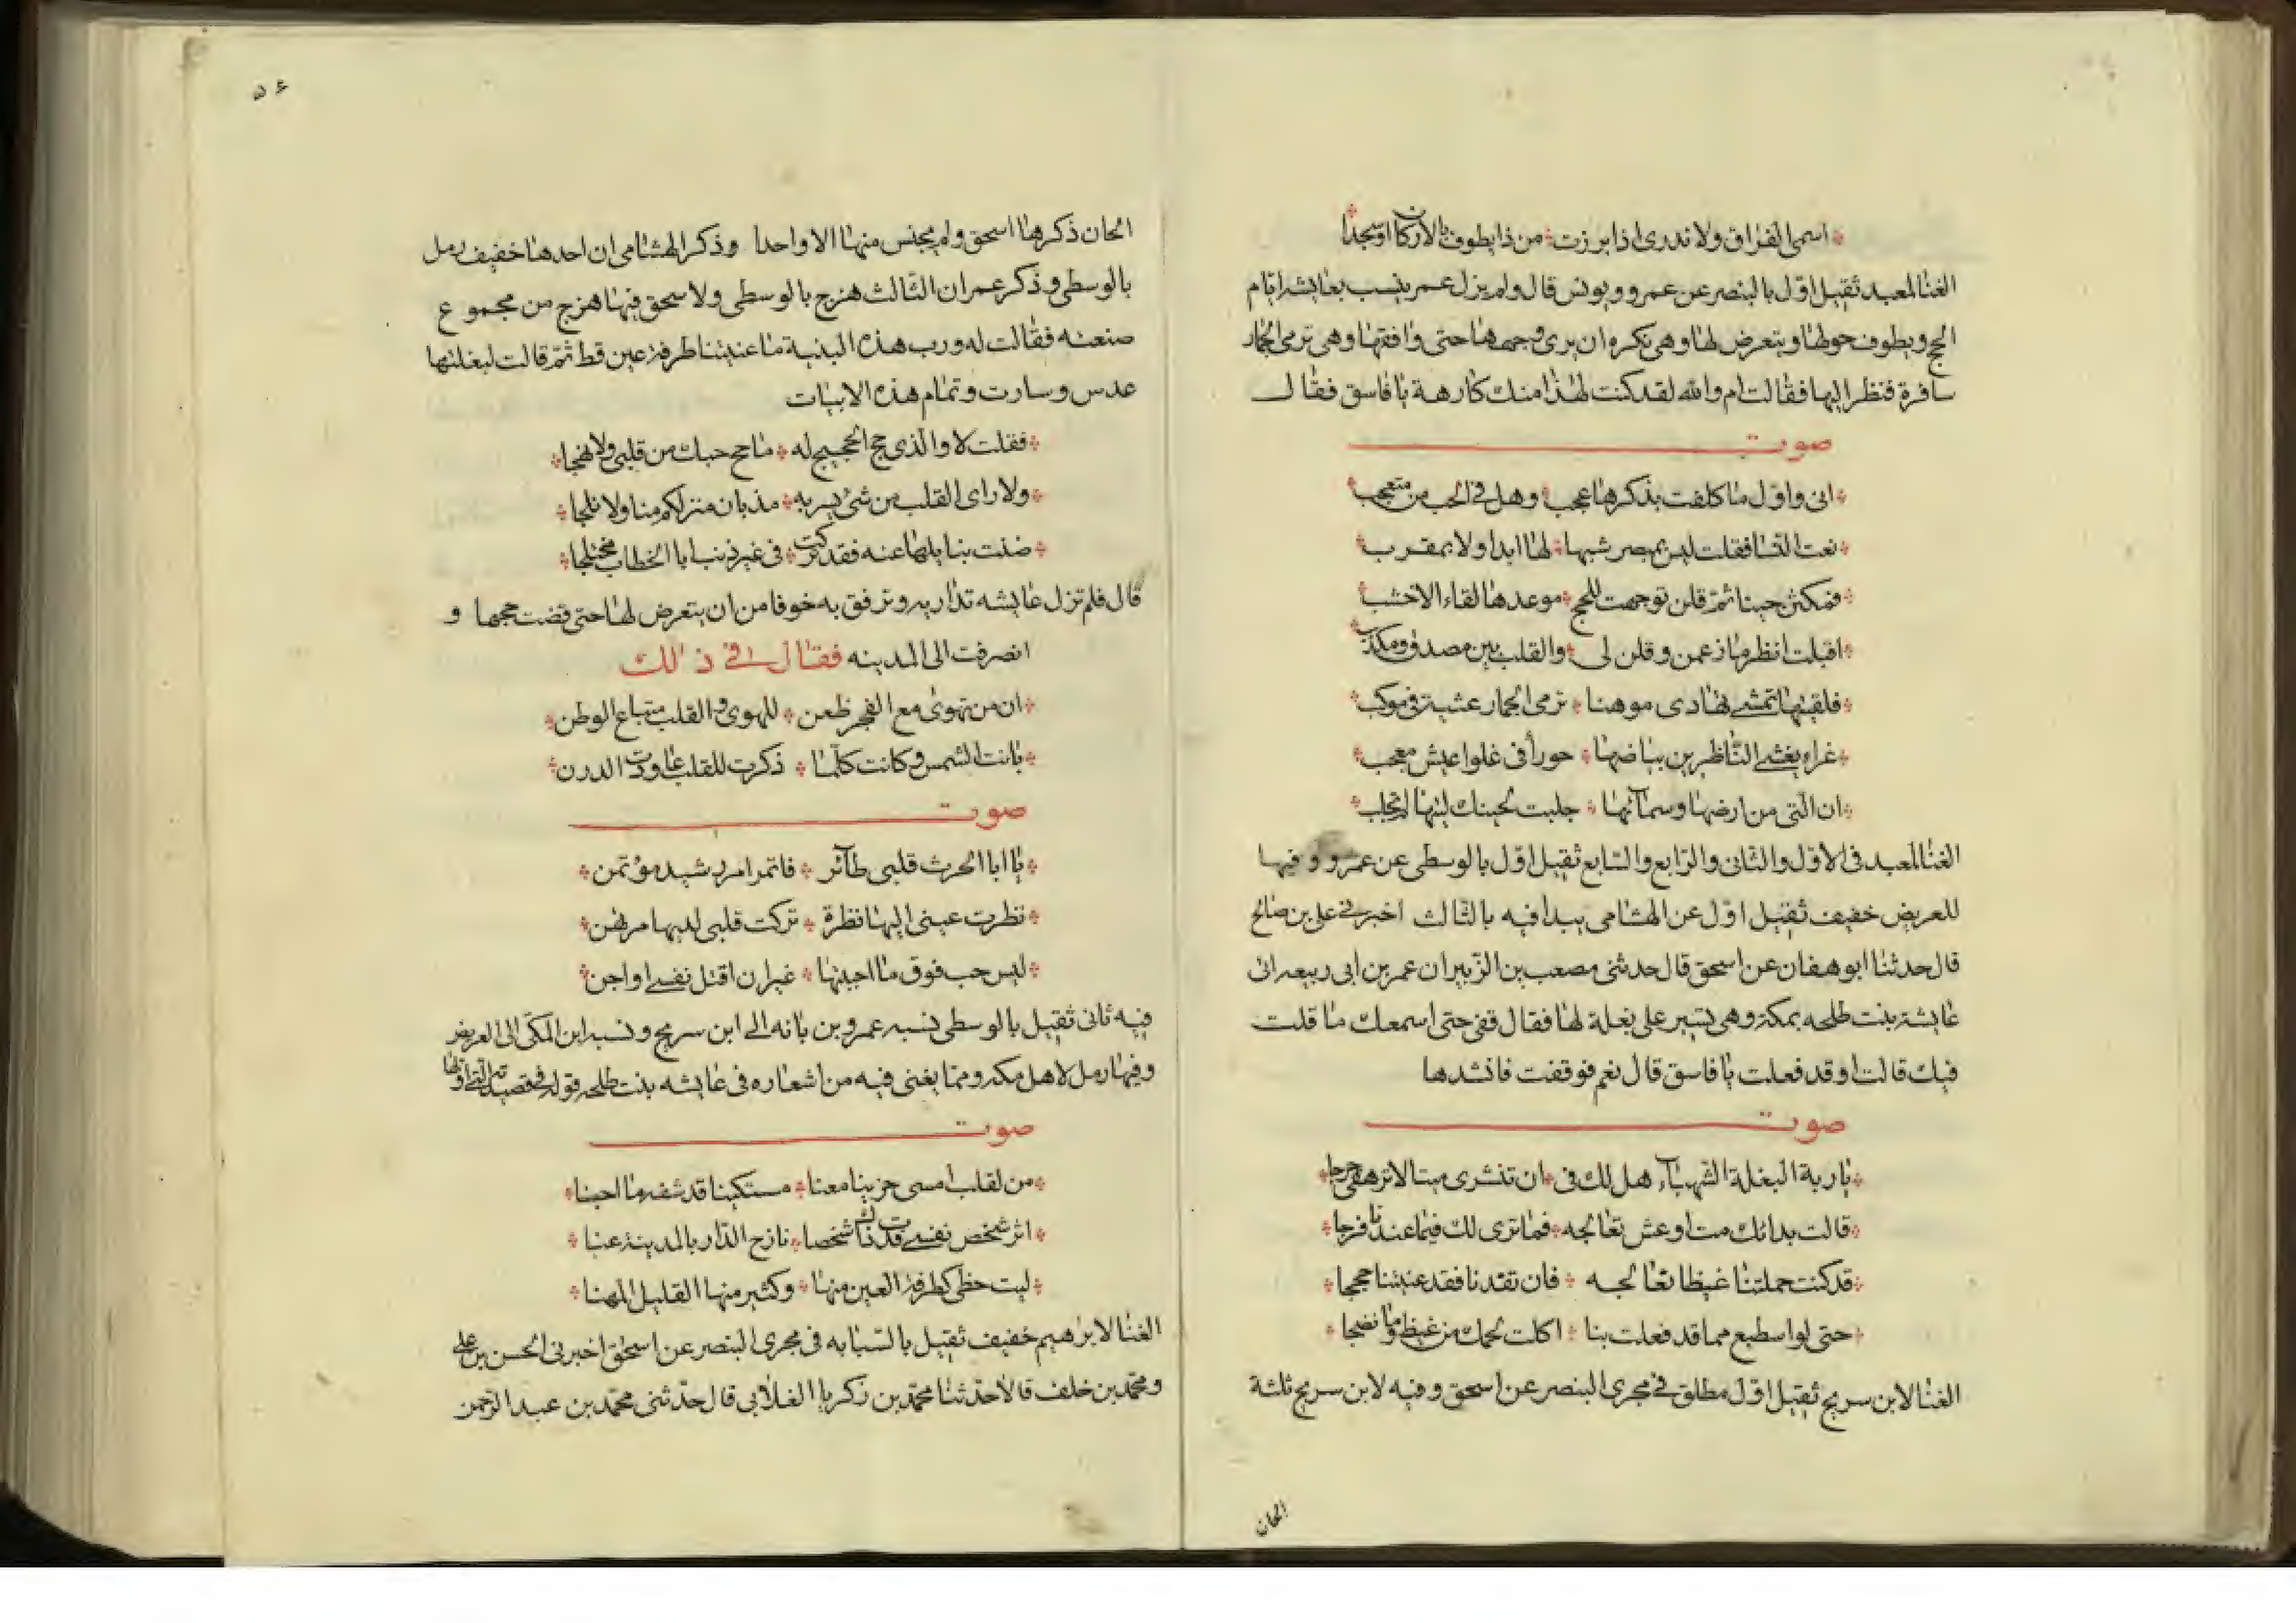 اسمى الفراق ولا ندرى اذا برزت من ذا يطوف بالاركان او سجدا
الغنا لمعبد ثقيل اول بالبنصر عن عمرو ويونس قال ولم يزل عمر ينسب بعايشه ايام
الحج ويطوف حولها ويتعرض لها وهى تكره ان يرى وجهها حتى وافقها وهى ترمى الجمار
سافرة فنظر اليها فقالت ام والله لقد كنت لهذا منك كارهة يا فاسق فقال
صوت
انى واول ما كلفت بذكرها عجب وهل فى الحب من متعجب
نعت النسا فقلت ليس بمبصر شبها لها ابدا ولا بمقرب
فمكثن حينا ثم قلن توجهت للحج موعدها لقاء الاخشب
اقبلت انظر ما زعمن وقلن لى والقلب بين مصدق ومكذب
فلقيتها تمشى تهادى موهنا ترمى الجمار عشية فى موكب
غراء يغشى الناظرين بياضها حورا فى غلوا عيش معجب
ان التى من ارضها وسمائها جلبت لحينك ليتها لم تجلب
الغنا لمعبد فى الاول والثانى والرابع والسابع ثقيل اول بالوسطى عن عمرو وفيها
للعريض خفيف ثقيل اول عن الهشامى يبدا فيه بالثالث اخبرنى على بن صالح
قال حدثنا ابو هفان عن اسحق قال حدثنى مصعب بن الزبير ان عمر بن ابى ربيعه اتى
عايشة بنت طلحه بمكة وهى تسير على بغلة لها فقال قفى حتى اسمعك ما قلت
فيك قالت او قد فعلت يا فاسق قال نعم فوقفت فانشدها
صوت
يا ربة البغلة الشهباء هل لك فى ان تنشرى ميتا لا ترهقى حرجا
قالت بدائك مت او عش تعالجه فما ترى لك فيما عندنا فرجا
قد كنت حملتنا غيظا تعالجه فان تقدنا فقد عنيتنا حججا
حتى لو اسطيع مما قد فعلت بنا اكلت لحمك من غيظ وما نضجا
الغنا لابن سريج ثقيل اول مطلق فى مجرى البنصر عن اسحق وفيه لابن سريج ثلثة
الحان
٥٤
الحان ذكرها اسحق ولم يجنس منها الا واحدا وذكر الهشامى ان احدها خفيف رمل
بالوسطى وذكر عمر ان الثالث هزج بالوسطى ولاسحق فيها هزج من مجموع
صنعته فقالت له ورب هذه البنية ما عنيتنا طرفة عين قط ثم قالت لبغلتها
عدس وسارت وتمام هذه الابيات
فقلت لا والذى حج الحجيج له ما مح حبك من قلبى ولا نهجا
ولا راى القلب من شئ يسر به مذ بان منزلكم منا ولا ثلجا
ضنت بنايلها عنه فقد تركت فى غير ذنب ابا الخطاب مختلجا
قال فلم تزل عايشه تداريه وترفق به خوفا من ان يتعرض لها حتى قضت حجها و
انصرفت الى المدينه فقال فى ذلك
ان من تهوى مع الفجر ظعن للهوى والقلب متباع الوطن
بانت الشمس وكانت كلما ذكرت للقلب عاودت الدرن
صوت
يا ابا الحرث قلبى طائر فاتمر امر رشيد مؤتمن
نظرت عينى اليها نظرة تركت قلبى لديها مرتهن
ليس حب فوق ما احببتها غير ان اقتل نفسى او اجن
فيه ثانى ثقيل بالوسطى نسبه عمرو بن بانه الى ابن سريج ونسبه ابن المكى الى العريض
وفيها رمل لاهل مكه ومما يغنى فيه من اشعاره فى عايشه بنت طلحه قوله فى قصيدته التى اولها
صوت
من لقلب امسى حزينا معنا مستكينا قد شفه ما احبنا
اثر شخص نفسى فدت ذاك شخصا نازح الدار بالمدينة عنا
ليت حظى كطرفة العين منها وكثير منها القليل المهنا
الغنا لابرهيم خفيف ثقيل بالسبابه فى مجرى البنصر عن اسحق اخبرنى الحسن بن على
ومحمد بن خلف قالا حدثنا محمد بن زكريا الغلابى قال حدثنى محمد بن عبد الرحمن